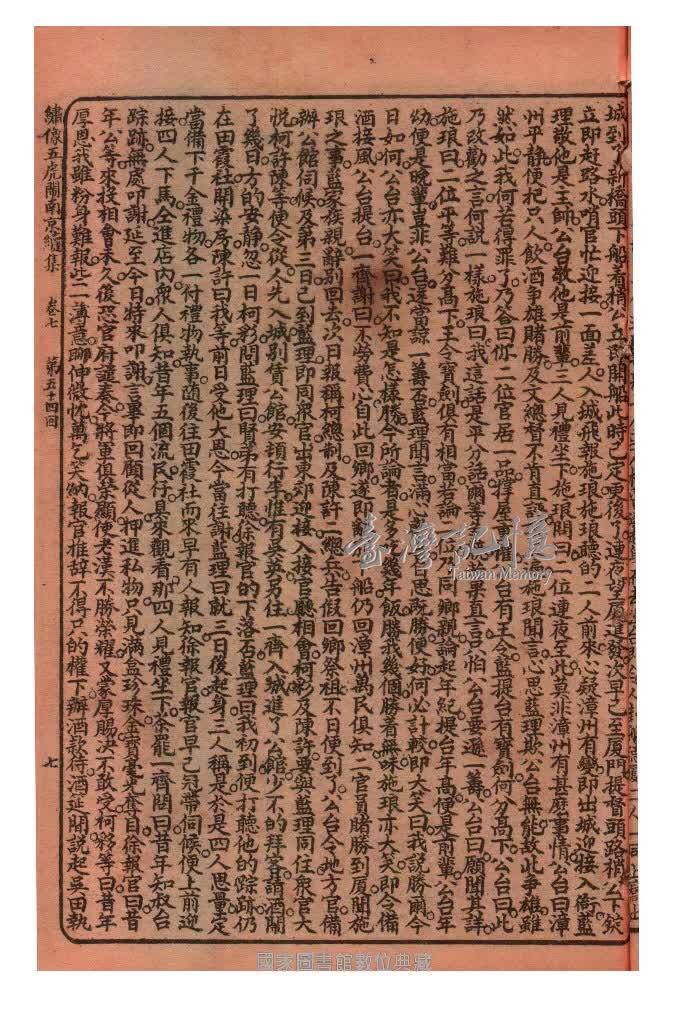 城到了新橋頭下船着梢公立即開船此時已定更後了連夜望厦進發次早已至厦門提督頭路稍公下錠
立即赶路水哨官忙迎接一面差人入城飛報施琅施琅聽的二人前來心疑漳州有變即出城迎接入衙藍
理敬他是主帥公台敬他是前輩三人見禮坐下施琅問曰二位連夜至此莫非漳州有甚麼事情公台曰漳
州平靜便把只人飲酒爭雄賭勝及文總督不肯直
施琅聞言心思藍理欺公台無能故此爭雄雖
然如此我何若得罪了乃答曰你二位官居一品
台有王令藍提台有寶劍何分高下公台曰此
乃改勸之言何說一樣施琅曰我這話是平分話爾等
直言只怕公台要遜一籌公台曰願聞其詳
施琅曰二位平等難分高下王令寶劍俱有相當若論
位乃同鄉親論起年紀提台年高便是前輩公台年
幼便是晚輩豈非公台遜當認一籌否藍理聞言滿心
自思既勝便好何必計較即大笑曰我說勝爾今
日如何公台亦大笑曰我不知是怎樣勝今所論者是多
幾年飯勝我幾個勝着無味施琅亦大笑即令備
酒接風公台提台一齊謝曰不勞費心自此回鄉遂即
船仍回漳州萬民俱知二官員賭勝到厦聞施
琅之事藍家族親辭別回去次日報稱柯總制及陳許二總兵告假回鄉祭祖不日便到了公台令地方官備
辦公館伺候及第三日已到藍理即同衆官出東郊迎接入接官廳相會柯彩及陳許要與藍理同住衆官大
悅柯許陳等便令從人先入城別賃公館安頓行李惟有吳英另住一齊入城進了公館少不的拜客請酒鬧
了幾日方的安靜忽一日柯彩問藍理曰賢弟有打聽徐報官的下落否藍理曰我初到便打聽他的踪跡仍
在田霞社開染房陳許曰我等前日受他大恩今當往謝藍理曰就三日後起身三人稱是於是四人思量定
當備下千金禮物各一付禮物執事随後往田霞社而來早有人報知徐報官報官早已冠帶伺候便上前迎
接四人下馬仝進店內衆人俱知昔年五個流民仔具來觀看那四人見禮坐下茶罷一齊問曰昔年知叔台
踪跡無處叩謝延至今日特來叩謝言畢即回顧從人押進私物只見滿盒珍珠金寶毫光奪目徐報官曰昔
年公等來投相會未久後恐官府譴奏今將軍俱榮顯使老漢不勝榮耀又蒙厚賜决不敢受柯彩等曰昔年
厚恩我雖粉身難報些二薄意聊伸微忱萬乞笑納報官推辞不得只的權下辦酒款待酒延間說起吳田執
繡像五虎鬧南京續集
卷七
第五十四回
七
臺灣記憶
Taiwan Memory
國家圖書館數位典藏